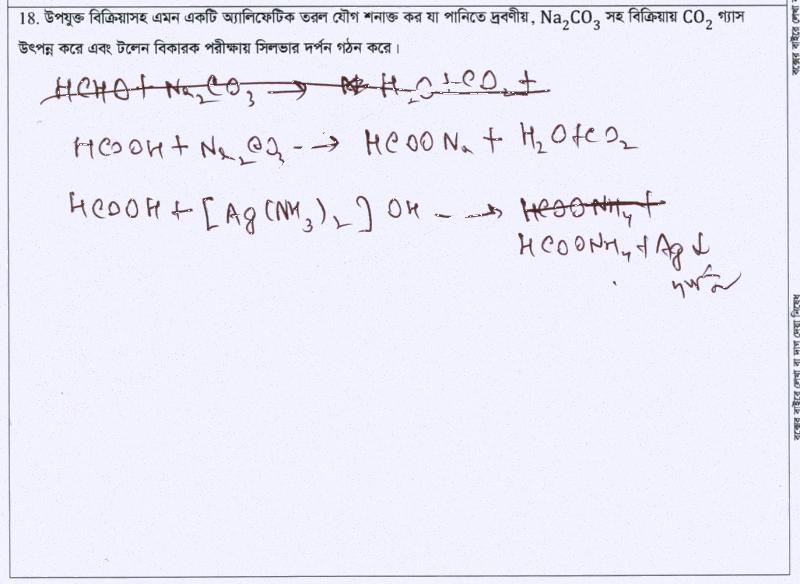 18. উপযুক্ত বিক্রিয়াসহ এমন একটি অ্যালিফেটিক তরল যৌগ শনাক্ত কর যা পানিতে দ্রবণীয়, Na₂CO₃ সহ বিক্রিয়ায় CO₂ গ্যাস
উৎপন্ন করে এবং টলেন বিকারক পরীক্ষায় সিলভার দর্পন গঠন করে।
HCHO + Na₂CO₃ → H₂O + CO₂ +
HCOOH + Na₂CO₃ --→ HCOONa + H₂O + CO₂
HCOOH + [Ag(NH₃)₂]OH --→ HCOONH₄ +
HCOONH₄ + Ag↓
দর্পন